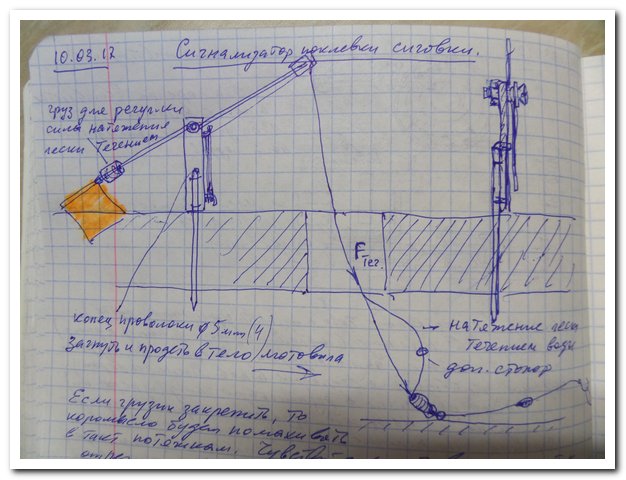 10.03.17
Сигнализатор поклевки сиговки.
груз для регул-ки
сила натяжения
лески течением
Fтеч.
конец проволоки ф5mm(4)
Загнуть и продеть в тело мотовила
натяжение лески
течением воды
доп. стопор
Если грузик закрепить, то
коромысло будет помахивать
в такт потяжкам.